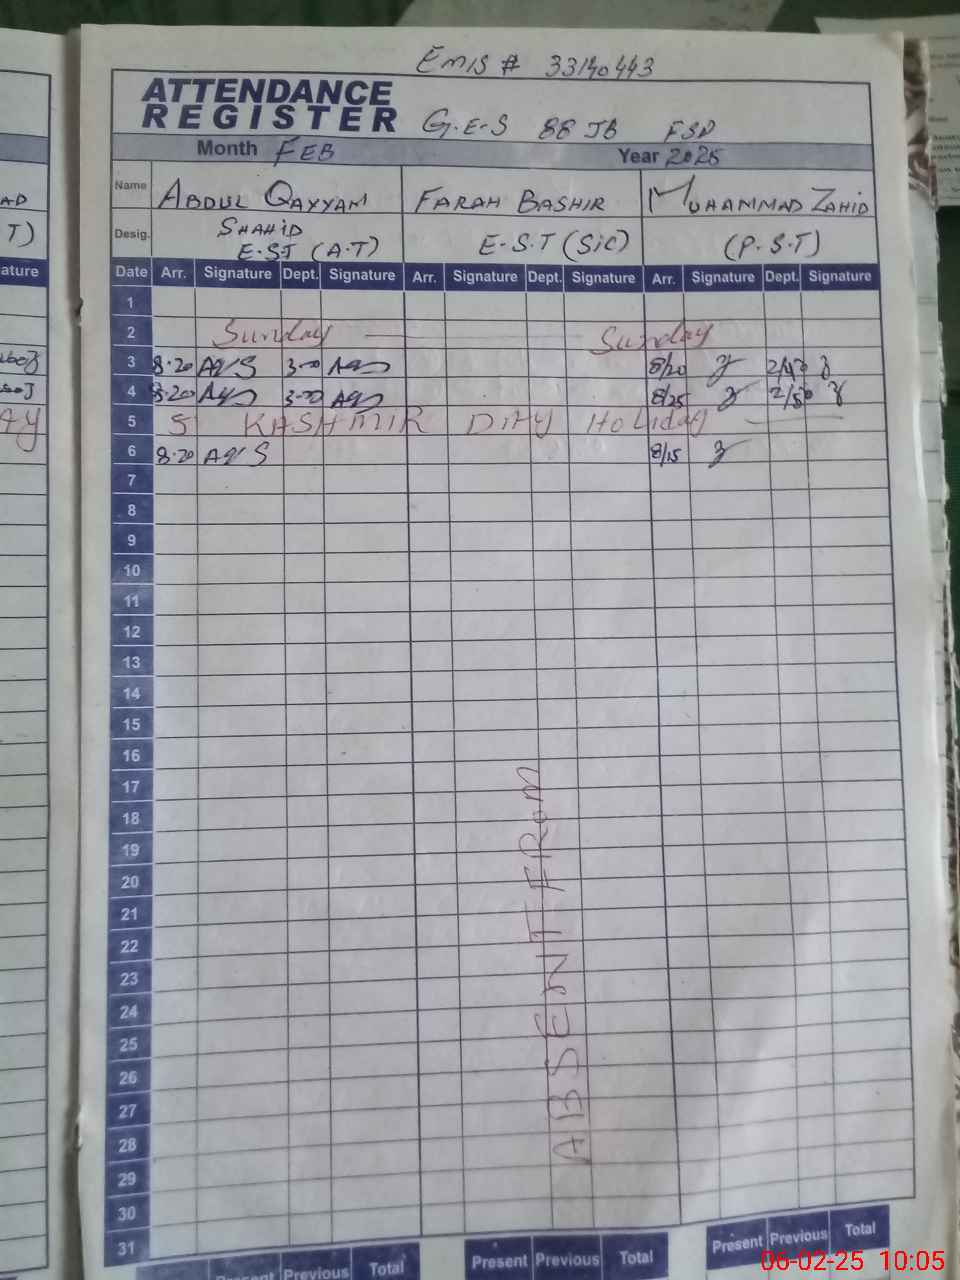 EMIS # 33140443
ATTENDANCE
REGISTER
G.E-S 88 JB FSD
Month FEB Year 2025
Name ABDUL QAYYAM FARAH BASHIR MUHAMMAD ZAHID
Desig. SHAHID
E.S.T (A.T) E-S.T (Sic) (P.S.T)
AD
T)
ature
Date Arr. Signature Dept. Signature Arr. Signature Dept. Signature Arr. Signature Dept. Signature
1
2 Sunday Sunday
3 8.20 3-00 8/20 2/40
4 8.20 3-00 8/25 2/50
AY
5 5 KASHMIR DAY Holiday
6 8.20 8/15
7
8
9
10
11
12
13
14
15
16
17
18
19
20
21
22
23
24
25
26
27
28
29
30
31
ABSENT FROM
Present Previous Total Present Previous Total Present Previous Total
06-02-25 10:05